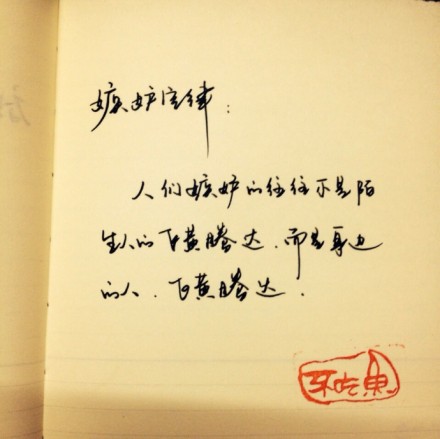 嫉妒定律：
人们嫉妒的往往不是陌
生人的飞黄腾达．而是身边
的人．飞黄腾达．
不吃鱼